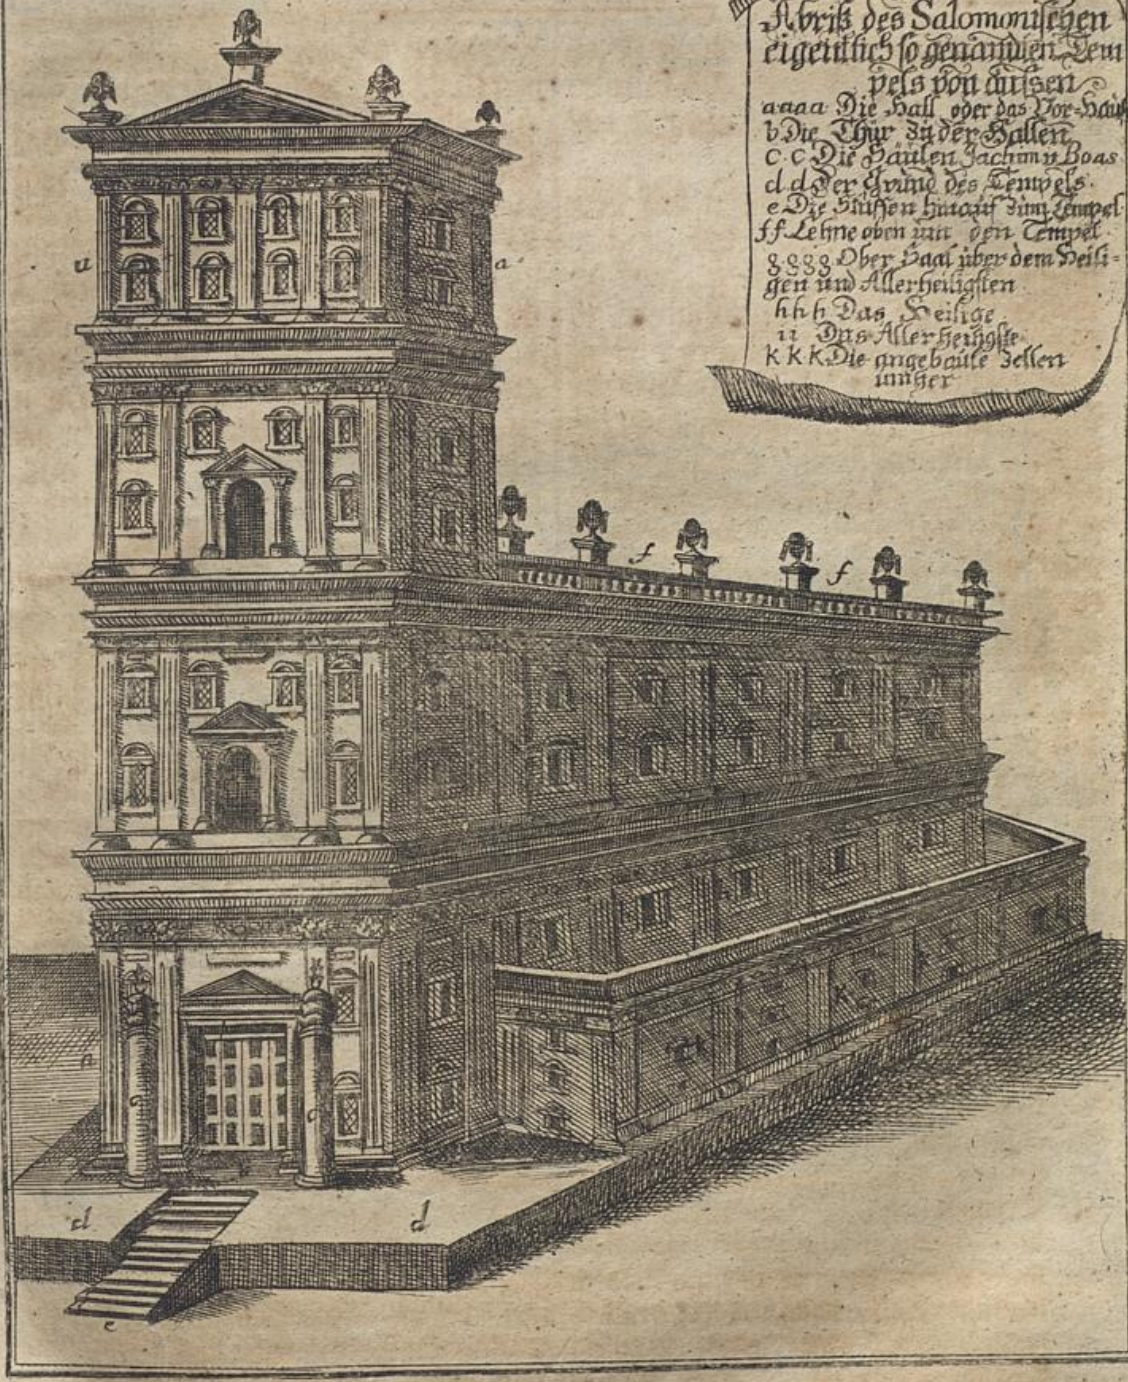 Abriß des Salomonischen
eigentlich so genandten Tem
pels von aussen
a a a a Die Hall oder das Vor-Hauß
b Die Thür zu der Hallen
c c Die Säulen Jachim v Boas
d d Der Grund des Tempels
e Die Stuffen hinauf zum Tempel
f f Lehne oben um den Tempel
g g g g Ober Saal über dem Heili=
gen und Allerheiligsten
h h h Das Heilige
i i Das Allerheiligste
k k k Die angebaute Zellen
umher
a
a
f
f
k
a
c
c
b
d
d
e